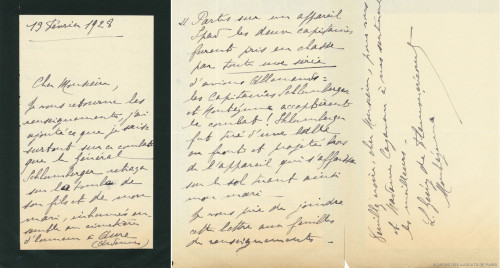 19 Février 1928
Cher Monsieur,
Je vous retourne les
renseignements, j'ai
ajouté ce que je savais
surtout sur ce combat
que le général
Schlumberger
sur la tombe de
son fils et de mon
mari, inhumés en-
semble au cimetière
d'honneur à Aure
(Ardennes)
" Partis sur un appareil
Spad les deux capitaines
furent pris en chasse
par toute une série
d'avions Allemands =
les Capitaines Schlumberger
et Montezuma acceptèrent
le combat ! Schlumberger
fut tué d'une balle
au front et projeté hors
de l'appareil qui s'affaissa
sur le sol tuant ainsi
mon mari
Je vous prie de joindre
cette lettre aux feuilles
de renseignements -
Veuillez croire cher Monsieur, pour vous
et Madame à mes sentiments
les meilleurs
Montezuma